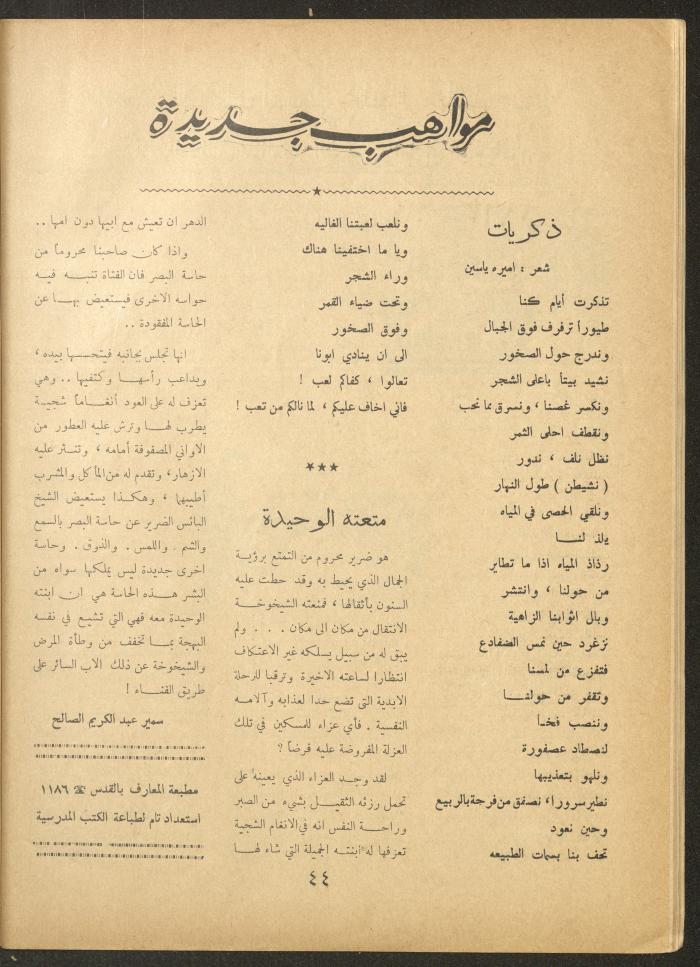 مواهب جديدة
ذكريات
شعر : اميره ياسين
تذكرت أيام كنا
طيوراً ترفرف فوق الجبال
وندرج حول الصخور
نشيد بيتاً باعلى الشجر
ونكسر غصنا ، ونسرق مما نحب
ونقطف احلى الثمر
نظل نلف ، ندور
( نشيطن ) طول النهار
ونلقي الحصى في المياه
يلذ لنا
رذاذ المياه اذا ما تطاير
من حولنا ، وانتشر
وبال اثوابنا الزاهية
نزغرد حين نمس الضفادع
فتفزع من لمسنا
وتقفر من حولنا
وننصب فخاً
لنصطاد عصفورة
ونلهو بتعذيبها
نطير سرورا ، نصفق من فرحة بالربيع
وحين نعود
تحف بنا بسمات الطبيعه
ونلعب لعبتنا الغاليه
ويا ما اختفينا هناك
وراء الشجر
وتحت ضياء القمر
وفوق الصخور
الى ان ينادي ابونا
تعالوا ، كفاكم لعب !
فاني اخاف عليكم ، لما نالكم من تعب !
***
متعته الوحيدة
هو ضرير محروم من التمتع برؤية
الجمال الذي يحيط به وقد حطت عليه
السنون بأثقالها ، فمنعته الشيخوخة
الانتقال من مكان الى مكان . . . ولم
يبق له من سبيل يسلكه غير الاعتكاف
انتظارا لساعته الاخيرة وترقبا للرحلة
الابدية التى تضع حدا لعذابه وآلامه
النفسية . فأي عزاء للمسكين في تلك
العزلة المفروضة عليه فرضاً ؟
لقد وجد العزاء الذي يعينه على
تحمل رزئه الثقيل بشيء من الصبر
وراحة النفس انه في الانغام الشجية
تعزفها له ابنته الجميلة التي شاء لها
الدهر ان تعيش مع ابيها دون امها ..
واذا كان صاحبنا محروماً من
حاسة البصر فان الفتاة تنبه فيه
حواسه الاخرى فيستعيض بها عن
الحاسة المفقودة ..
انها تجلس بجانبه فيتحسسها بيده ،
ويداعب رأسها وكتفيها .. وهي
تعزف له على العود أنغاماً شجية
يطرب لها وترش عليه العطور من
الاواني المصفوفة أمامه ، وتنثر عليه
الازهار ، وتقدم له من المأكل والمشرب
أطيبهما ، وهكذا يستعيض الشيخ
البائس الضرير عن حاسة البصر بالسمع
والشم . واللمس . والذوق . وحاسة
اخرى جديدة ليس يملكها سواه من
البشر هذه الحاسة هي ان ابنته
الوحيدة معه فهي التي تشيع في نفسه
البهجة بما تخفف من وطأة المرض
والشيخوخة عن ذلك الاب السائر على
طريق الفناء !
سمير عبد الكريم الصالح
مطبعة المعارف بالقدس ☎ ١١٨٦
استعداد تام لطباعة الكتب المدرسية
٤٤